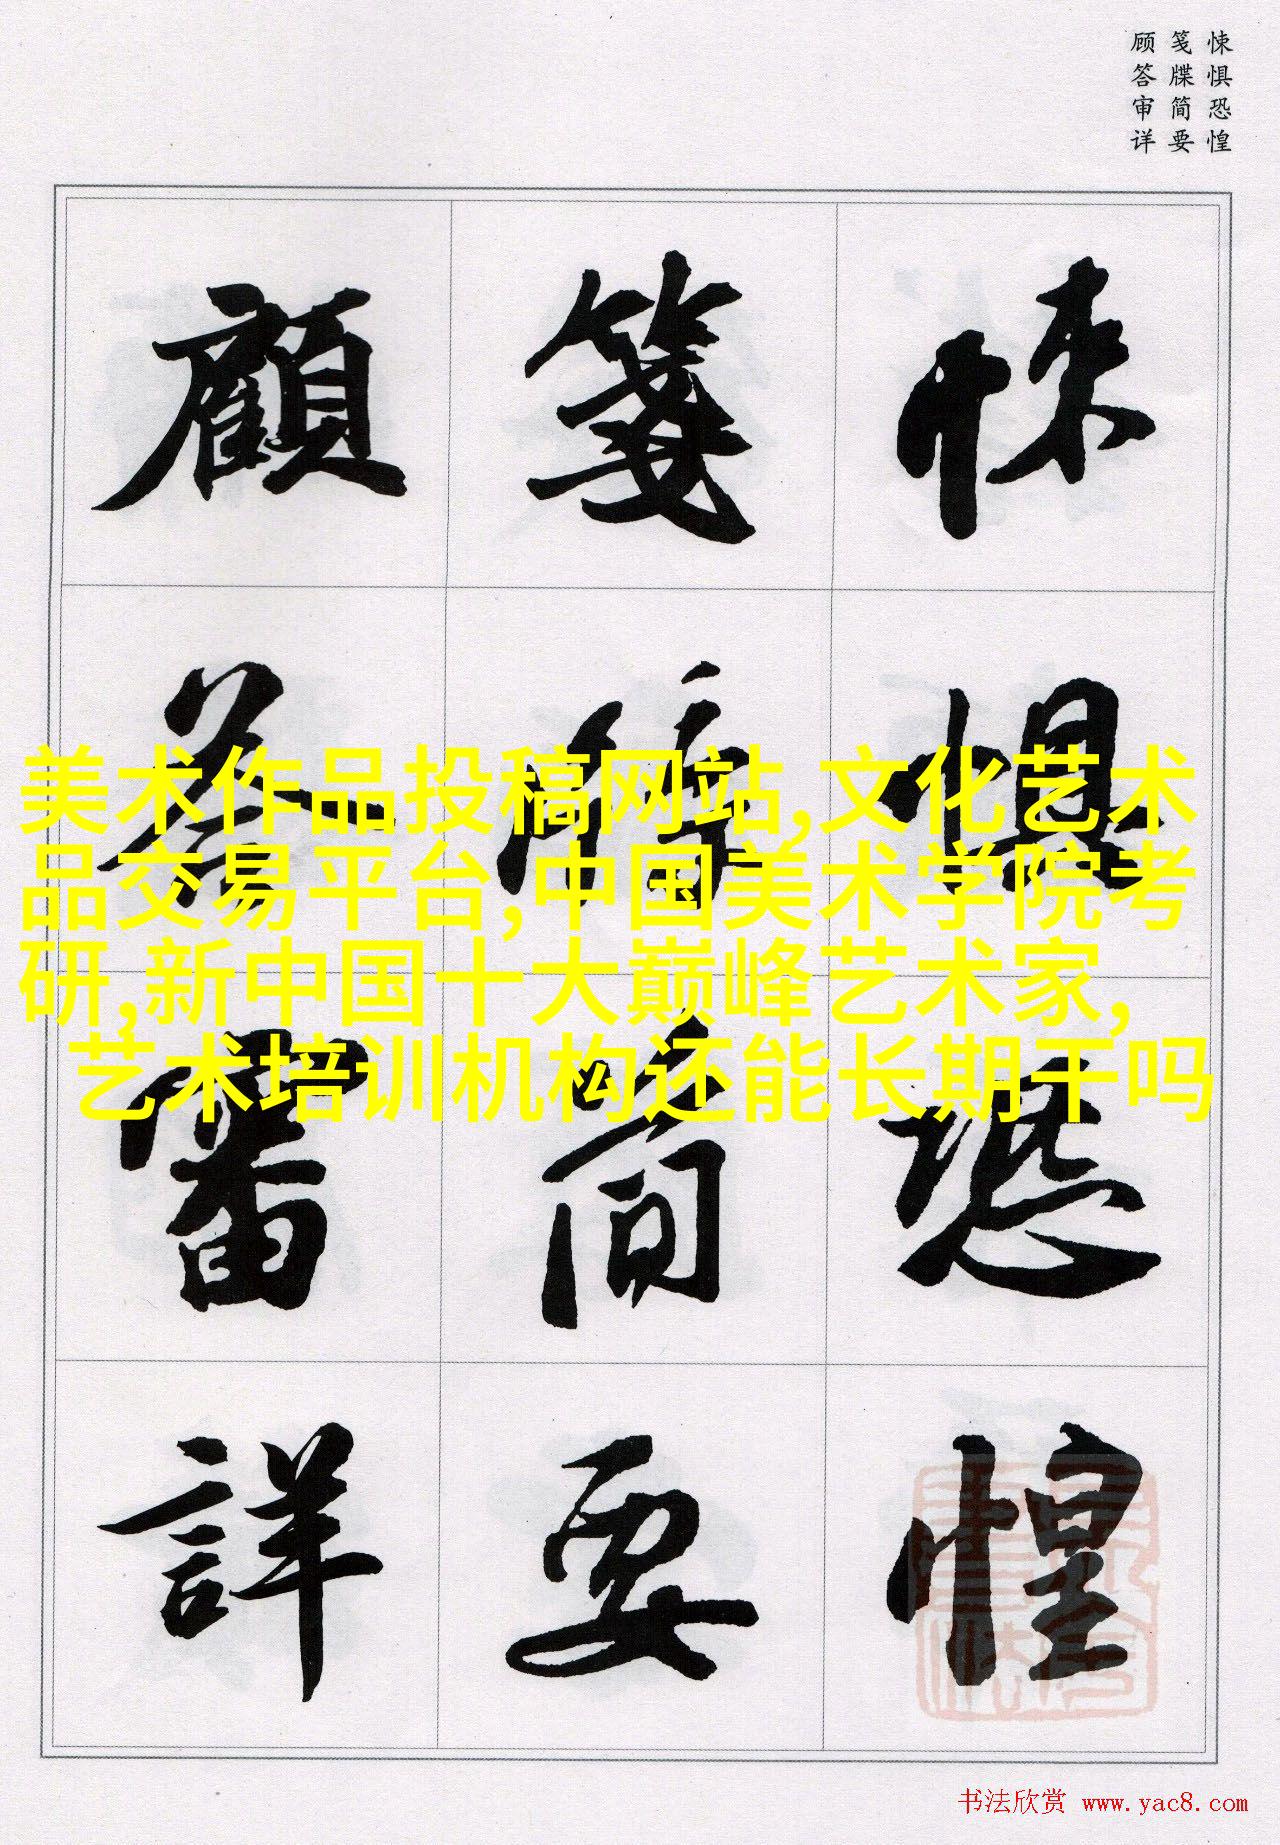 悚惧恐惶
笺牒简要
顾答审详
悚懼恐惶
箋牒簡要
顧答審詳
美术作品投稿网站,文化艺术
品交易平台,中国美术学院考
研,新中国十大巅峰艺术家,
艺术培训机构还能长期干吗
书法欣赏 www.yac8.com